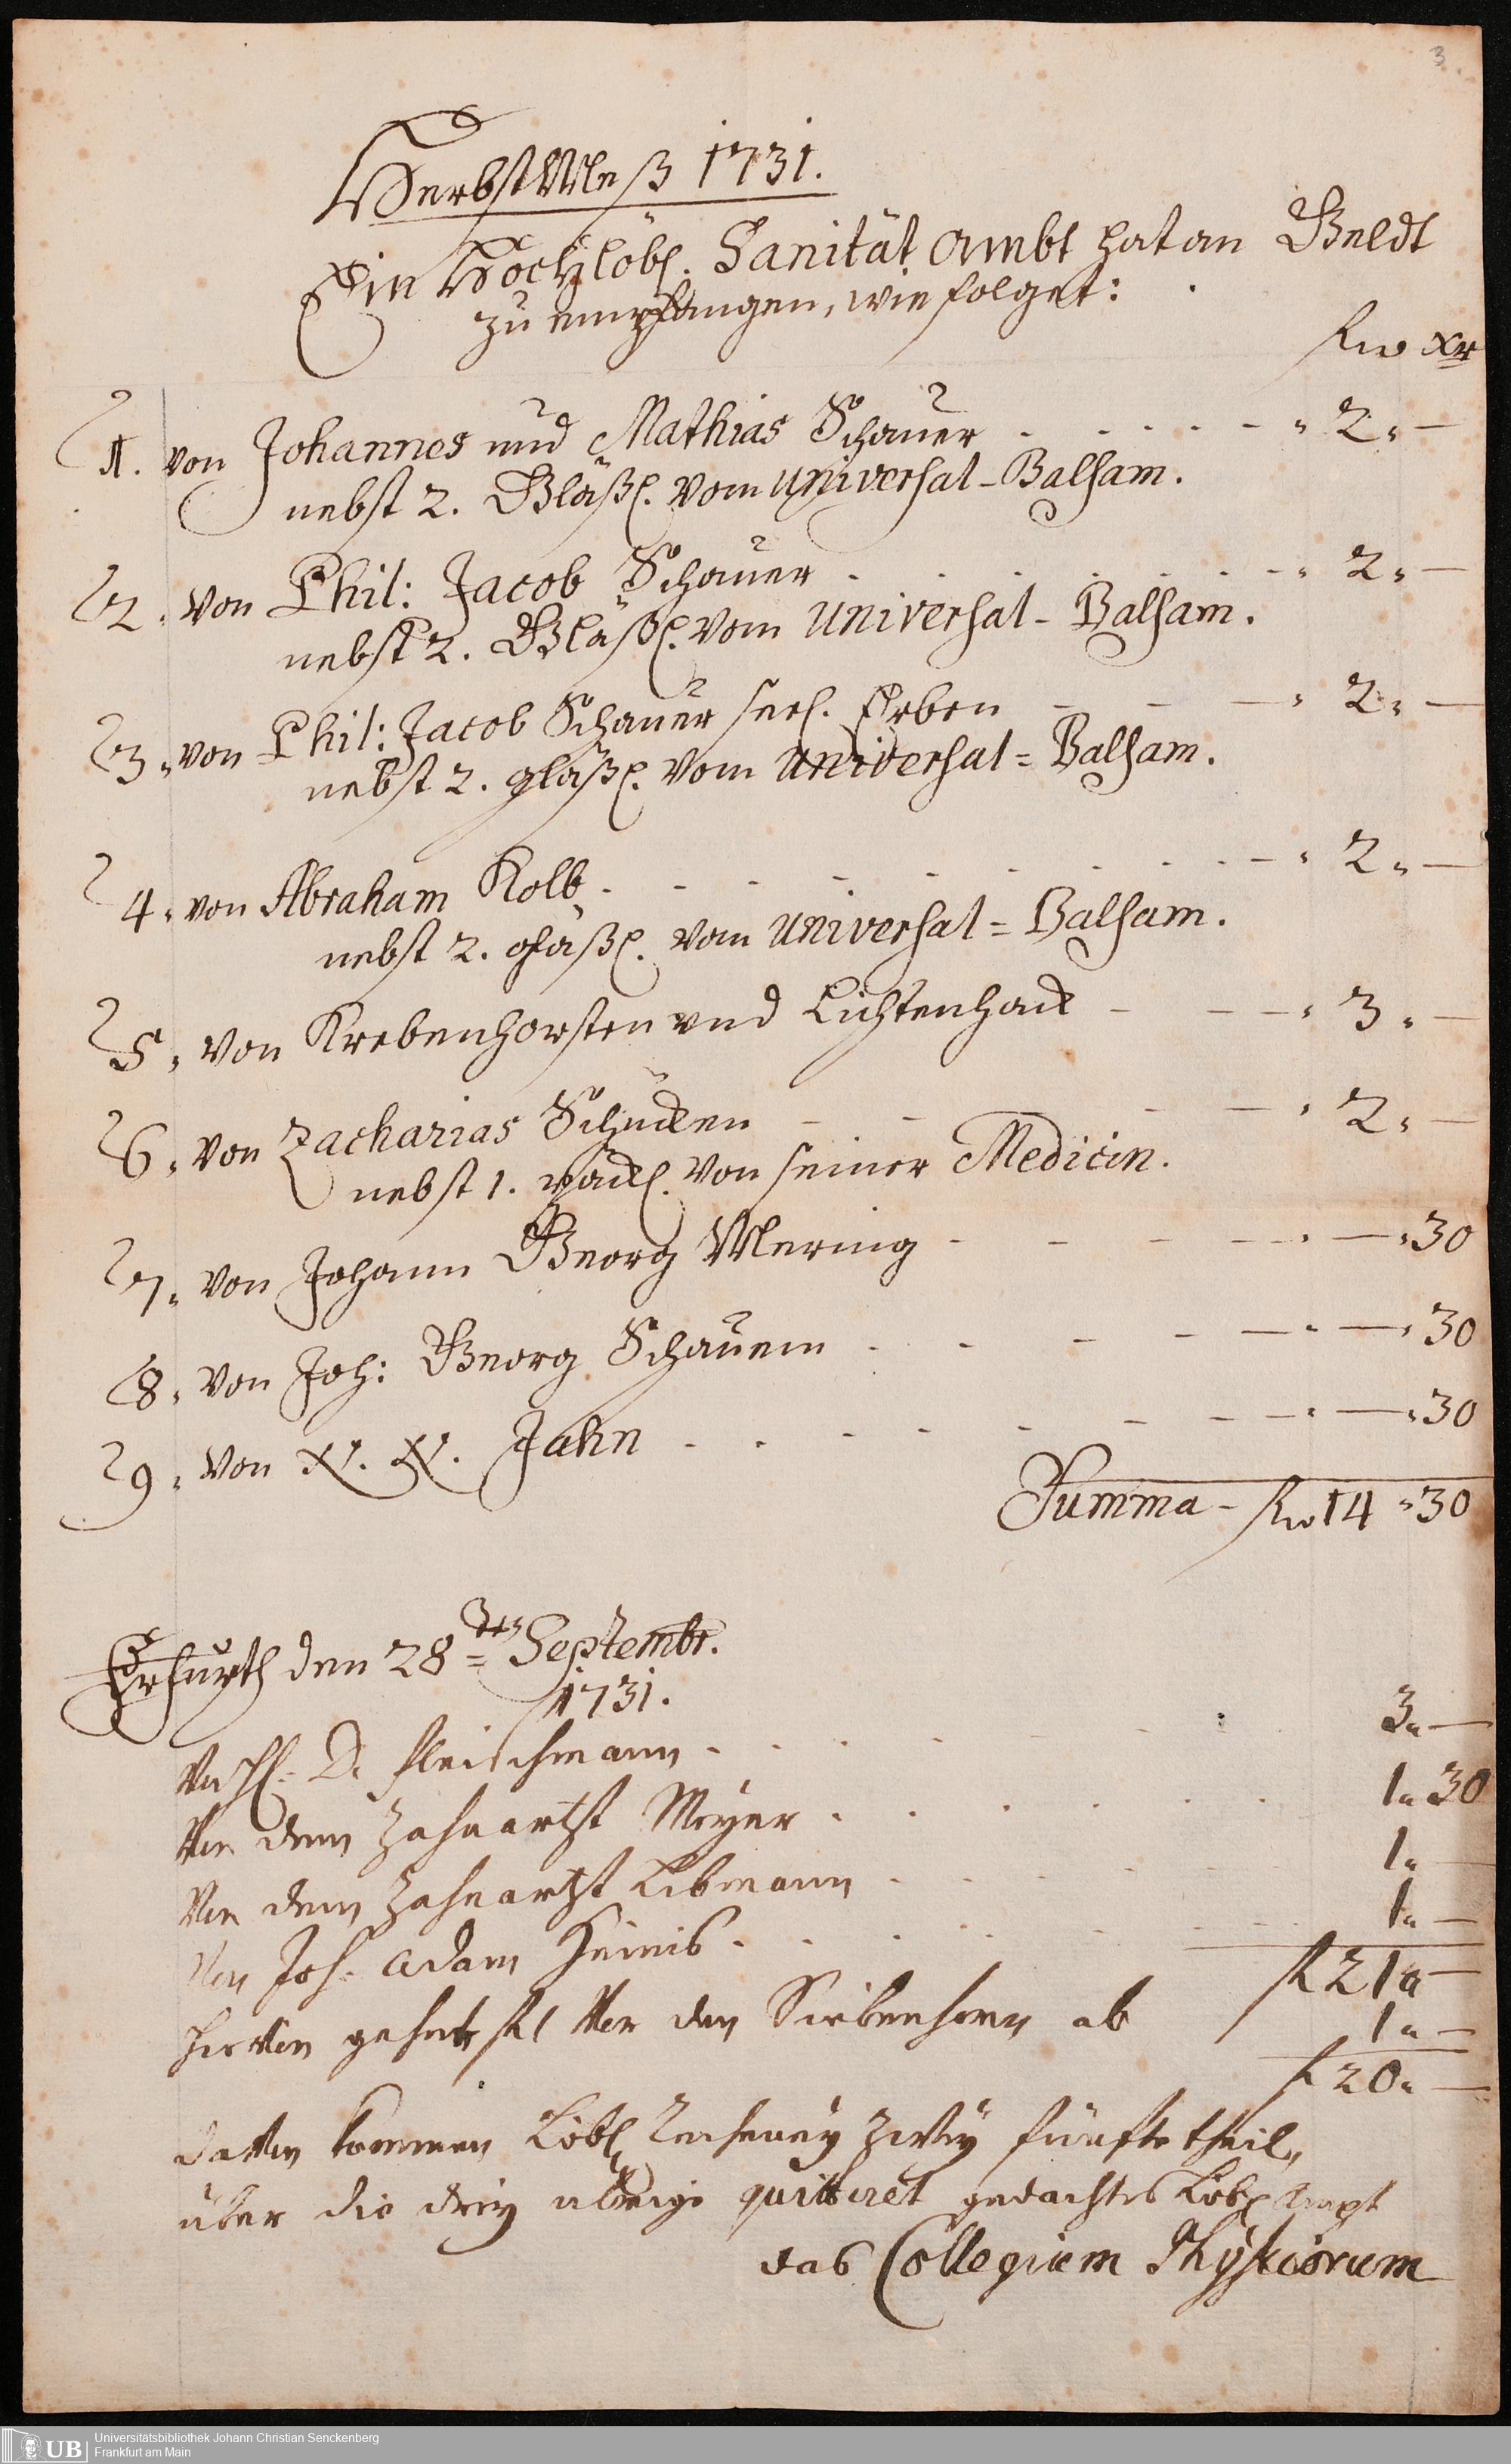 3
HerbstMeß 1731.
Ein Hochlöbl. Sanität Ambt hat an Geldt
zu empfangen, wie folget:
xr
1. von Johannes und Mathias Schauer - - - - - - " 2 " —
nebst 2. Gläßl. vom Universal-Balsam.
2. von Phil: Jacob Schauer - - - - - - " 2 " —
nebst 2. Gläßl. vom Universal-Balsam.
3. von Phil: Jacob Schauer seel. Erben - - - " 2 " —
nebst 2. gläßl. vom Universal=Balsam.
4. von Abraham Kolb - - - - - - " 2 " —
nebst 2. gläßl. vom Universal=Balsam.
5. von Krebenhorsten und Lichtenhad - - - " 3 " —
6. von Zacharias Schucken - - - - " 2 " —
nebst 1. päckl. von seiner Medicin.
7. von Johann Georg Mering - - - - " — " 30
8. von Joh: Georg Schauern - - - - " — " 30
9. von N. N. Jahn - - - - - - " — " 30
Summa - 14 " 30
Erfurth den 28ten Septembr.
1731.
Von H. D. Fleischmann - - - - 3 " —
Von dem Zahnartzt Meyer - - - - 1 " 30
Von dem Zahnartzt Libmann - - - - 1 " —
Von Joh. Adam - - - - 1 " —
fl 21 " —
Hievon gehet fl 1 Vor den ab 1 " —
fl 20 " —
davon kommen Löbl. zwey fünfte theil,
über die drey übrige quittiret gedachtes Löbl. Ampt
das Collegium Physicorum
UB
Universitätsbibliothek Johann Christian Senckenberg
Frankfurt am Main